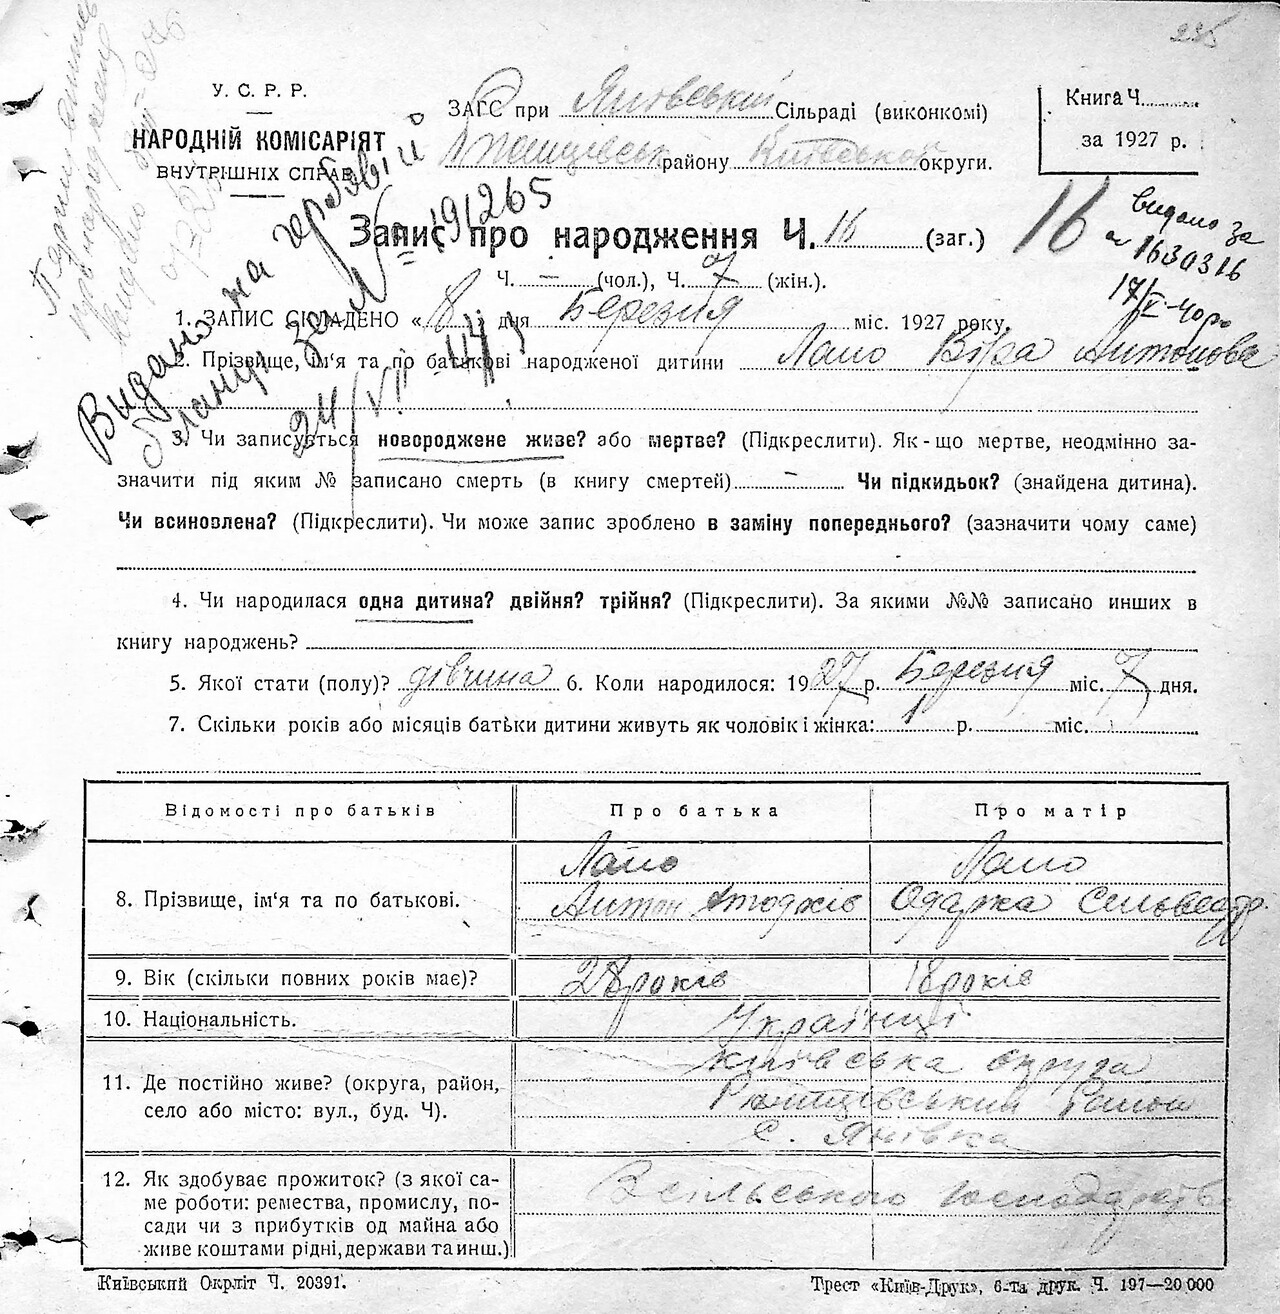 225
У. С. Р. Р.
НАРОДНІЙ КОМІСАРІЯТ
ВНУТРІШНІХ СПРАВ
ЗАГС при Янівській Сільраді (виконкомі)
району Київської округи.
Книга Ч.
за 1927 р.
Запис про народження Ч. 16 (заг.)
16
Видано за
№ 1630316
17/V-40р
Ч. — (чол.), Ч. 7 (жін.).
Видано на гербовій
бланці за № 191265
24/VII 44
1. ЗАПИС СКЛАДЕНО « 8 » дня Березня міс. 1927 року.
2. Прізвище, ім'я та по батькові народженої дитини Лапо Віра Антонова
3. Чи записується новороджене живе? або мертве? (Підкреслити). Як-що мертве, неодмінно за-
значити під яким № записано смерть (в книгу смертей) — Чи підкидьок? (знайдена дитина).
Чи всиновлена? (Підкреслити). Чи може запис зроблено в заміну попереднього? (зазначити чому саме)
4. Чи народилася одна дитина? двійня? трійня? (Підкреслити). За якими №№ записано инших в
книгу народжень?
5. Якої стати (полу)? дівчина 6. Коли народилося: 1927 р. Березня міс. 7 дня.
7. Скільки років або місяців батьки дитини живуть як чоловік і жінка: 1 р. міс.
Відомості про батьків Про батька Про матір
8. Прізвище, ім'я та по батькові.
Лапо Лапо
Антон Одарка Сильвестр.
9. Вік (скільки повних років має)? 28 років 18 років
10. Національність. Українці
11. Де постійно живе? (округа, район,
село або місто: вул., буд. Ч).
Київська округа
район
с. Янівка
12. Як здобуває прожиток? (з якої са-
ме роботи: ремества, промислу, по-
сади чи з прибутків од майна або
живе коштами рідні, держави та инш.)
Київський Окрліт Ч. 20391.
Трест «Київ-Друк», 6-та друк. Ч. 197—20 000